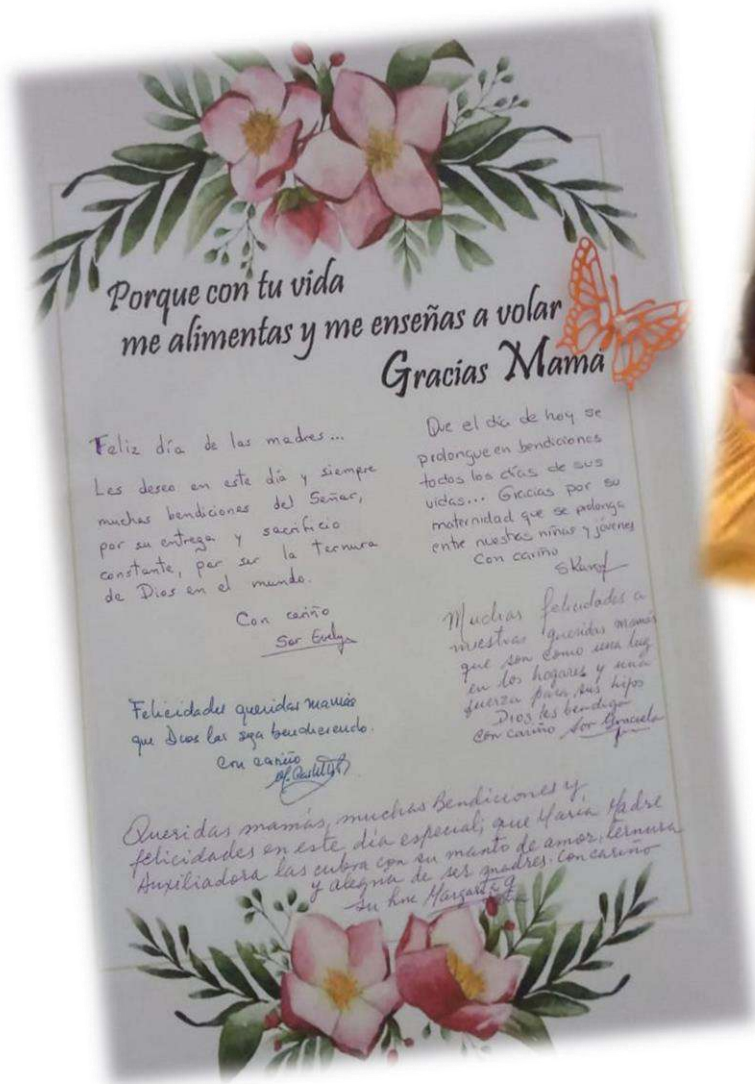 Porque con tu vida
me alimentas y me enseñas a volar
Gracias Mamá
Feliz día de las madres...
Les deseo en este día y siempre
muchas bendiciones del Señor,
por su entrega y sacrificio
constante, por ser la ternura
de Dios en el mundo.
Con cariño
Sor Evelyn
Que el día de hoy se
prolongue en bendiciones
todos los días de sus
vidas... Gracias por su
maternidad que se prolonga
entre nuestras niñas y jóvenes
Con cariño
Muchas felicidades a
nuestras queridas mamás
que son como una luz
en los hogares y una
fuerza para sus hijos
Dios les bendiga
Con cariño Sor Graciela
Felicidades queridas mamás
que Dios las siga bendiciendo.
Con cariño
Queridas mamás, muchas Bendiciones y
felicidades en este día especial; que María Madre
Auxiliadora las cubra con su manto de amor, ternura
y alegria de ser madres. Con cariño
su hna Margarita